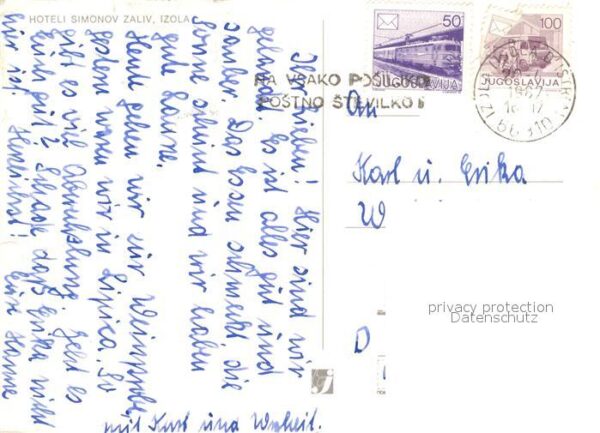 HOTELI SIMONOV ZALIV, IZOLA
Ihr Lieben! Hier sind wir
gelandet. Es ist alles gut und
sauber. Das Essen schmeckt die
Sonne scheint und wir haben
gute Laune.
Heute gehen wir zur Weinprobe
Gestern waren wir in Lipica. So
gibt es viel Abwechslung. Geht es
Euch gut? Schade daß Erika nicht
mit ist. Herzlichst! Eure Hanne
mit Kurt und
50
JUGOSLAVIJA
100
JUGOSLAVIJA
NA VSAKO POŠILJKO
POŠTNO ŠTEVILKO!
1987
An
Karl u. Erika
W
D
privacy protection
Datenschutz